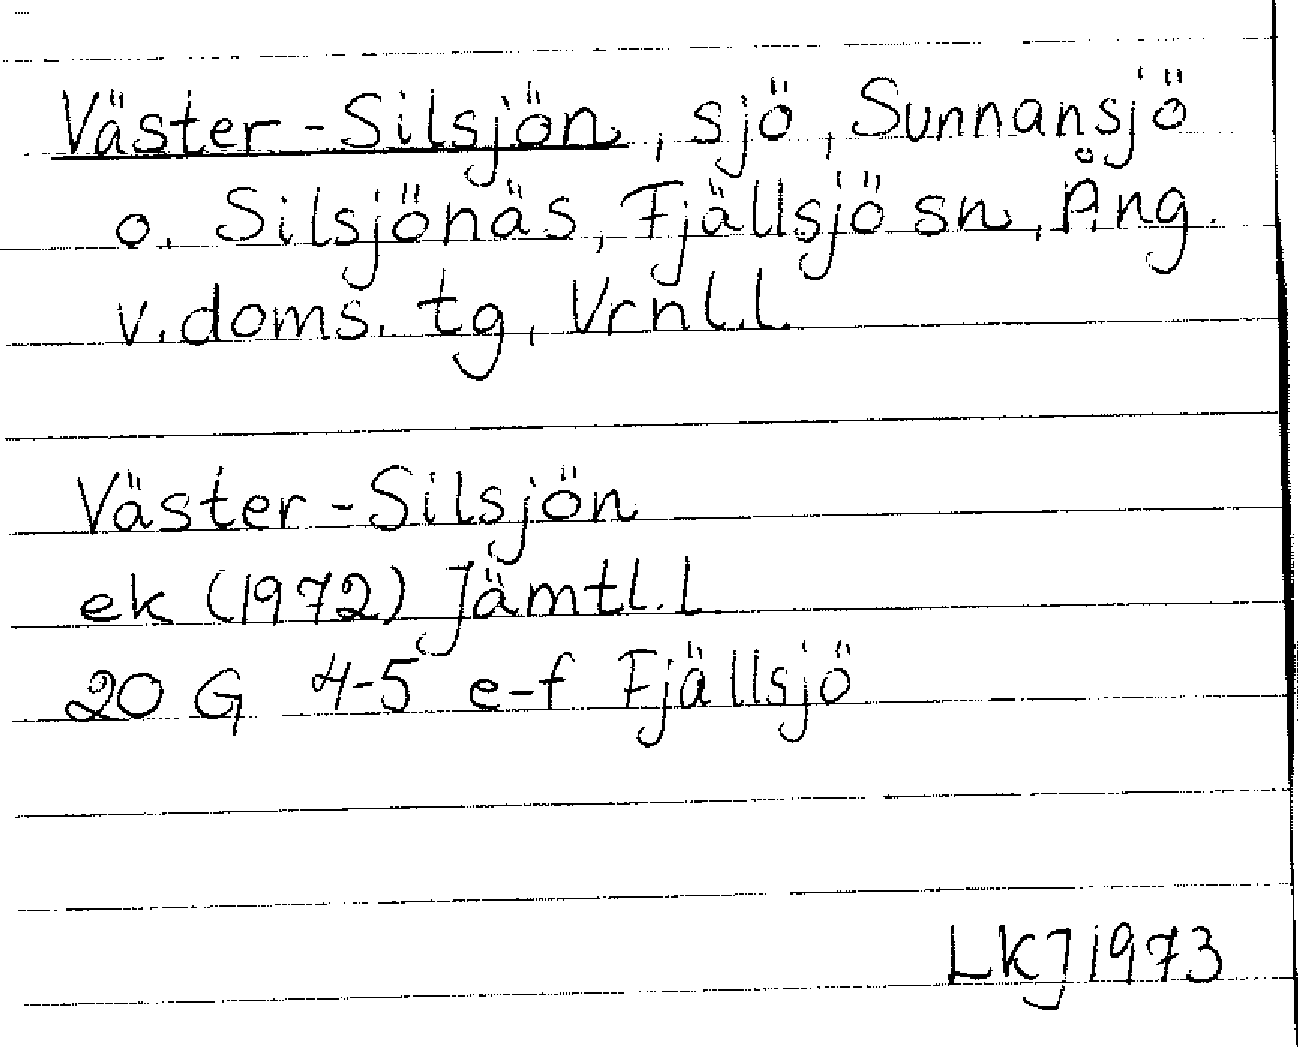 Väster-Silsjön, sjö, Sunnansjö
o. Silsjönäs, Fjällsjö sn, Ång.
v. doms. tg, Vrnl.l
Väster-Silsjön
ek (1972) Jämtl.l
20 G 4-5 e-f Fjällsjö
LKJ 1973